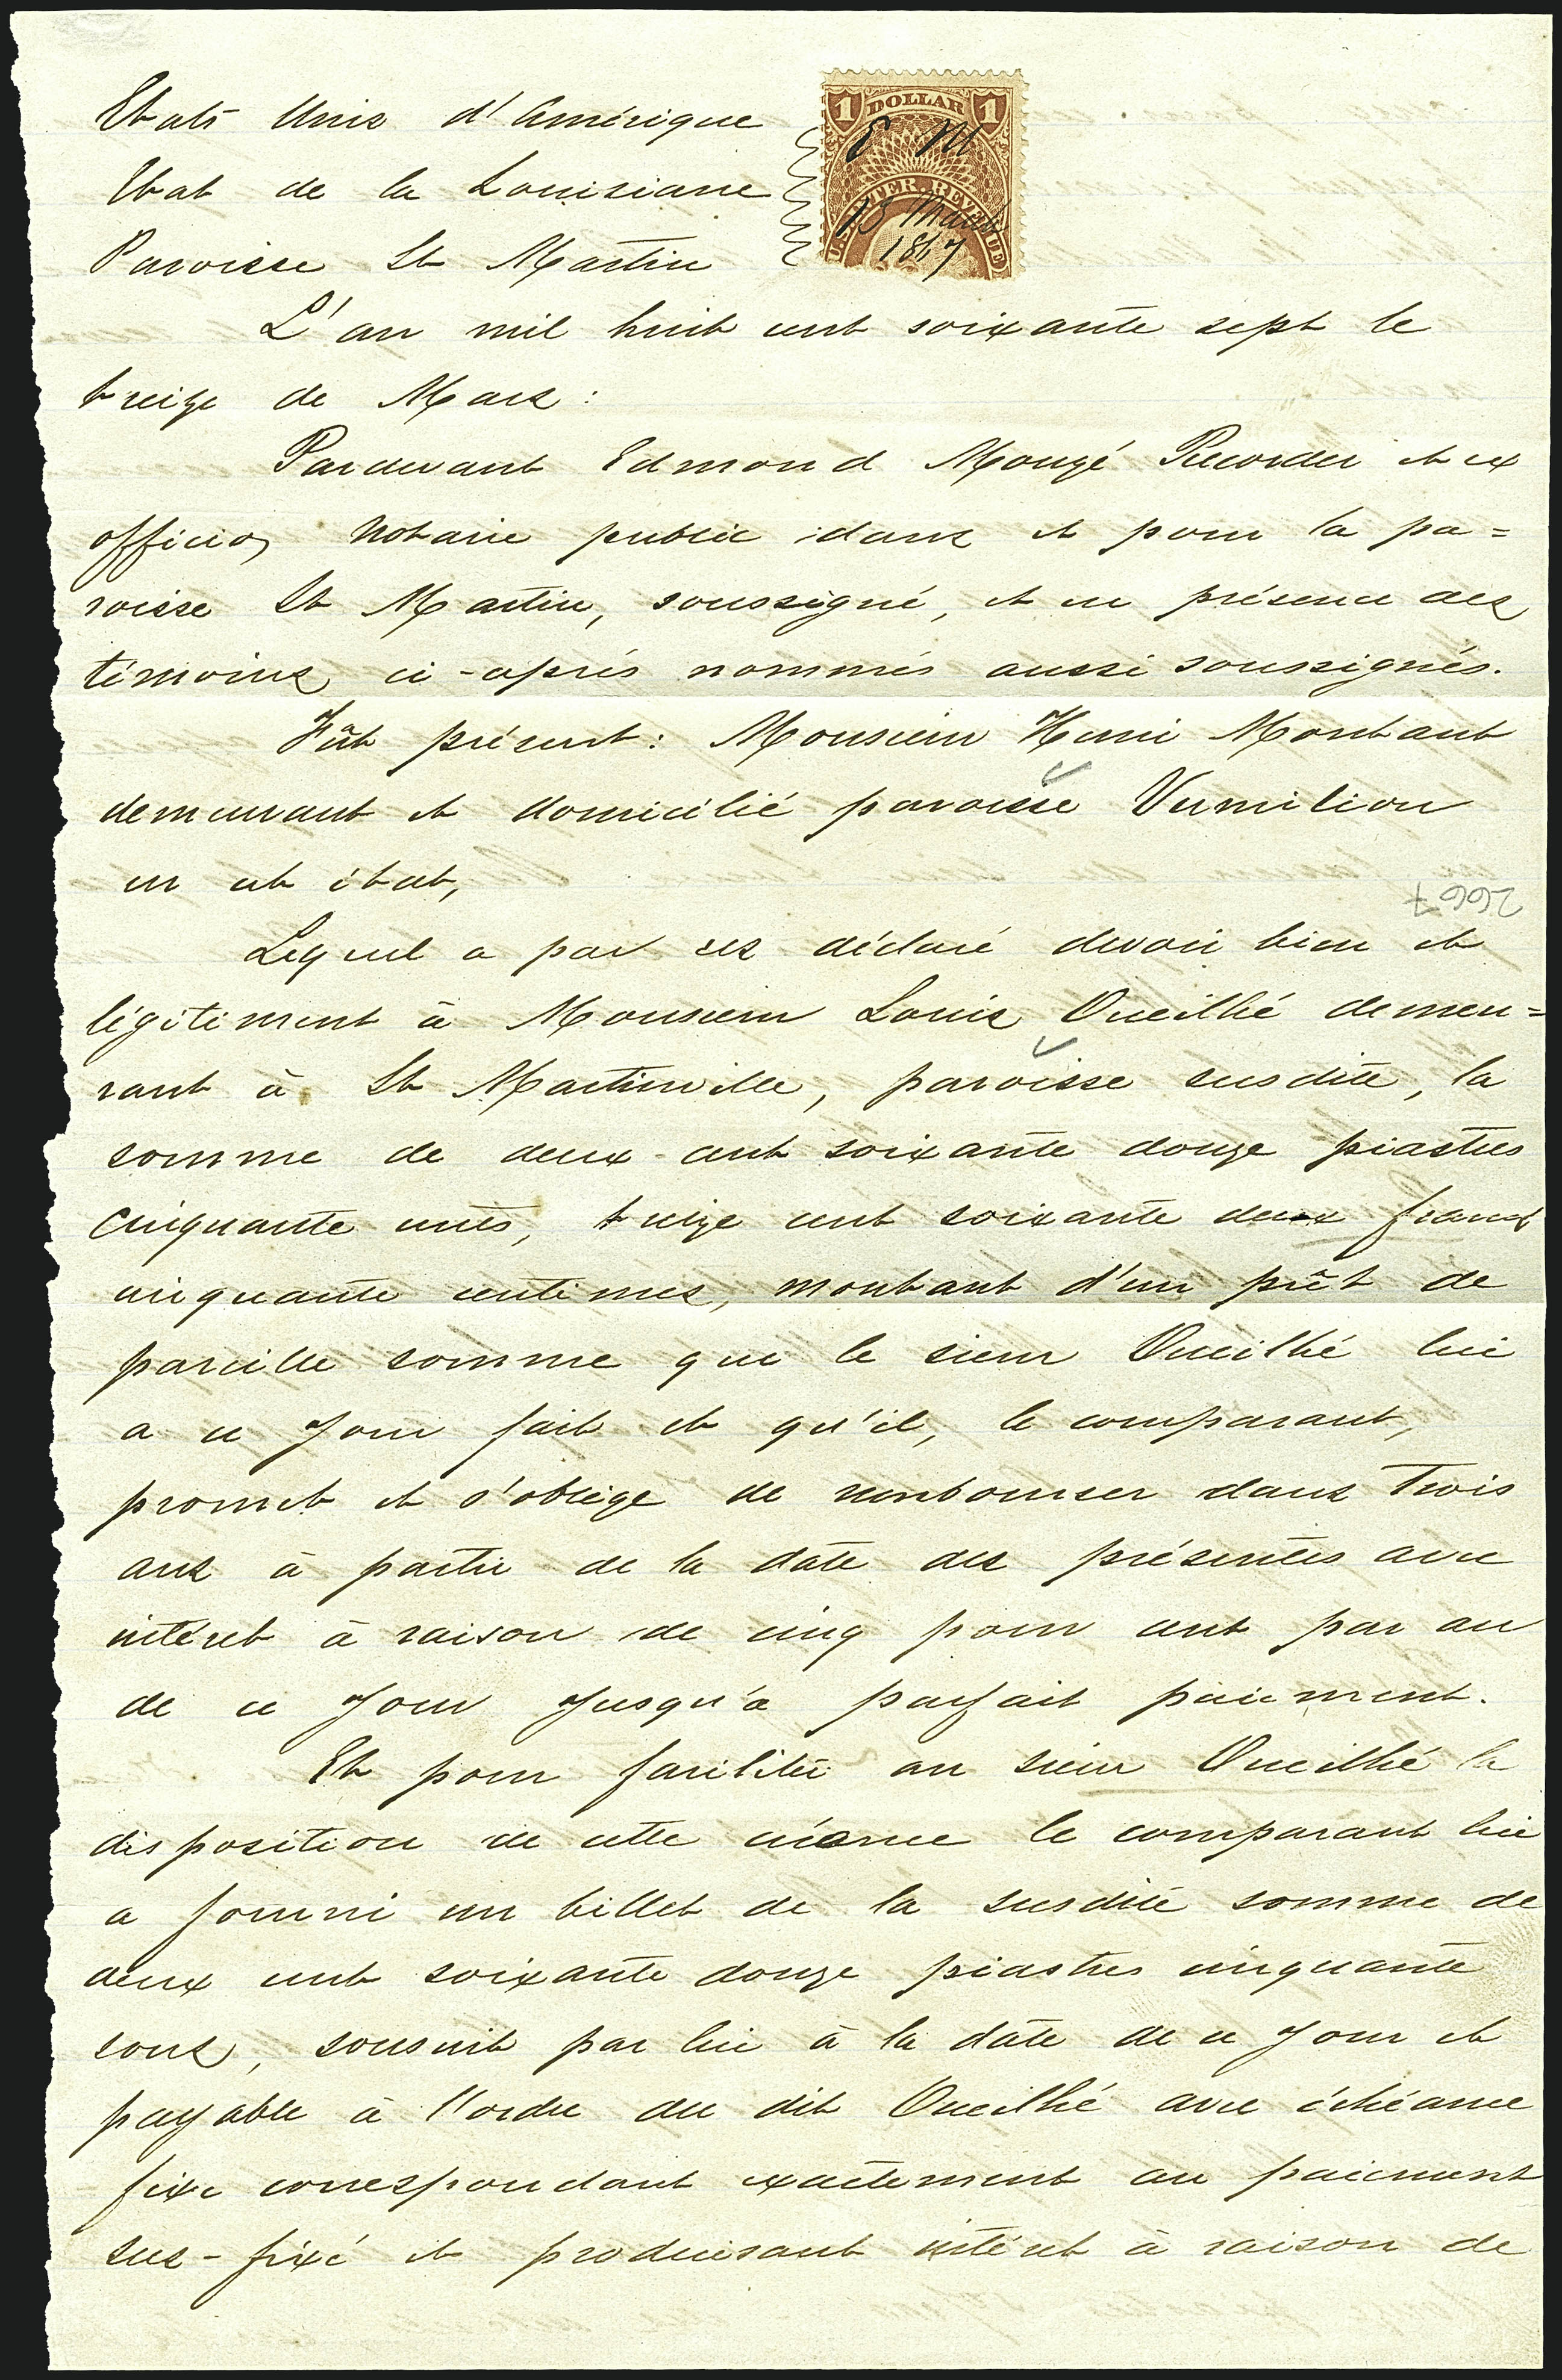 Etats Unis d'Amérique
Etat de la Louisiane
Paroisse St Martin
1 DOLLAR 1
U.S. INTER. REVENUE
E M
13 Mars
1867
L'an mil huit cent soixante sept le
treize de Mars :
Pardevant Edmond Mougé Recorder et ex
officio, Notaire public dans et pour la pa=
roisse St Martin, soussigné, et en présence des
témoins ci-après nommés aussi soussignés.
Fût présent : Monsieur Henri Montaut
demeurant et domicilié paroisse Vermilion
en cet état,
2667
Lequel a par ces déclaré devoir bien et
légitiment à Monsieur Louis Oueilhé demeu=
rant à St Martinville, paroisse susdite, la
somme de deux-cent soixante douze piastres
cinquante cents, treize cent soixante deux francs
cinquante centimes, montant d'un prêt de
pareille somme que le sieur Oueilhé lui
a ce Jour fait et qu'il, le comparant,
promet et s'oblige de rembourser dans Trois
ans à partir de la date des présentes avec
intéret à raison de cinq pour cent par an
de ce Jour Jusqu'à parfait paiement.
Et pour faciliter au sieur Oueilhé la
disposition de cette créance le comparant lui
a fourni un billet de la susdite somme de
deux cent soixante douze piastres cinquante
sous, souscrit par lui à la date de ce Jour et
payable à l'ordre du dit Oueilhé avec échéance
fixe correspondant exactement au paiement
sus-fixé et produisant intéret à raison de